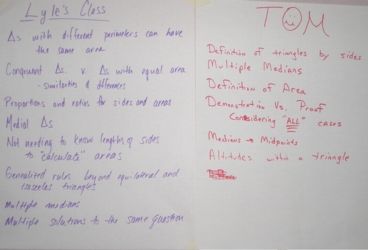 Lyle's Class
Δs with different perimeters can have
the same area
Congruent Δs v. Δs with equal area
- similarities & differences
Proportions and ratios for sides and areas
Medial Δs
Not needing to know lengths of sides
to "calculate" areas
Generalized rules beyond equilateral and
isosceles triangles
Multiple medians
Multiple solutions to the same question
TOM
Definition of triangles by sides
Multiple Medians
Definition of Area
Demonstration Vs. Proof
Considering "ALL" cases
Medians → Midpoints
Altitudes within a triangle